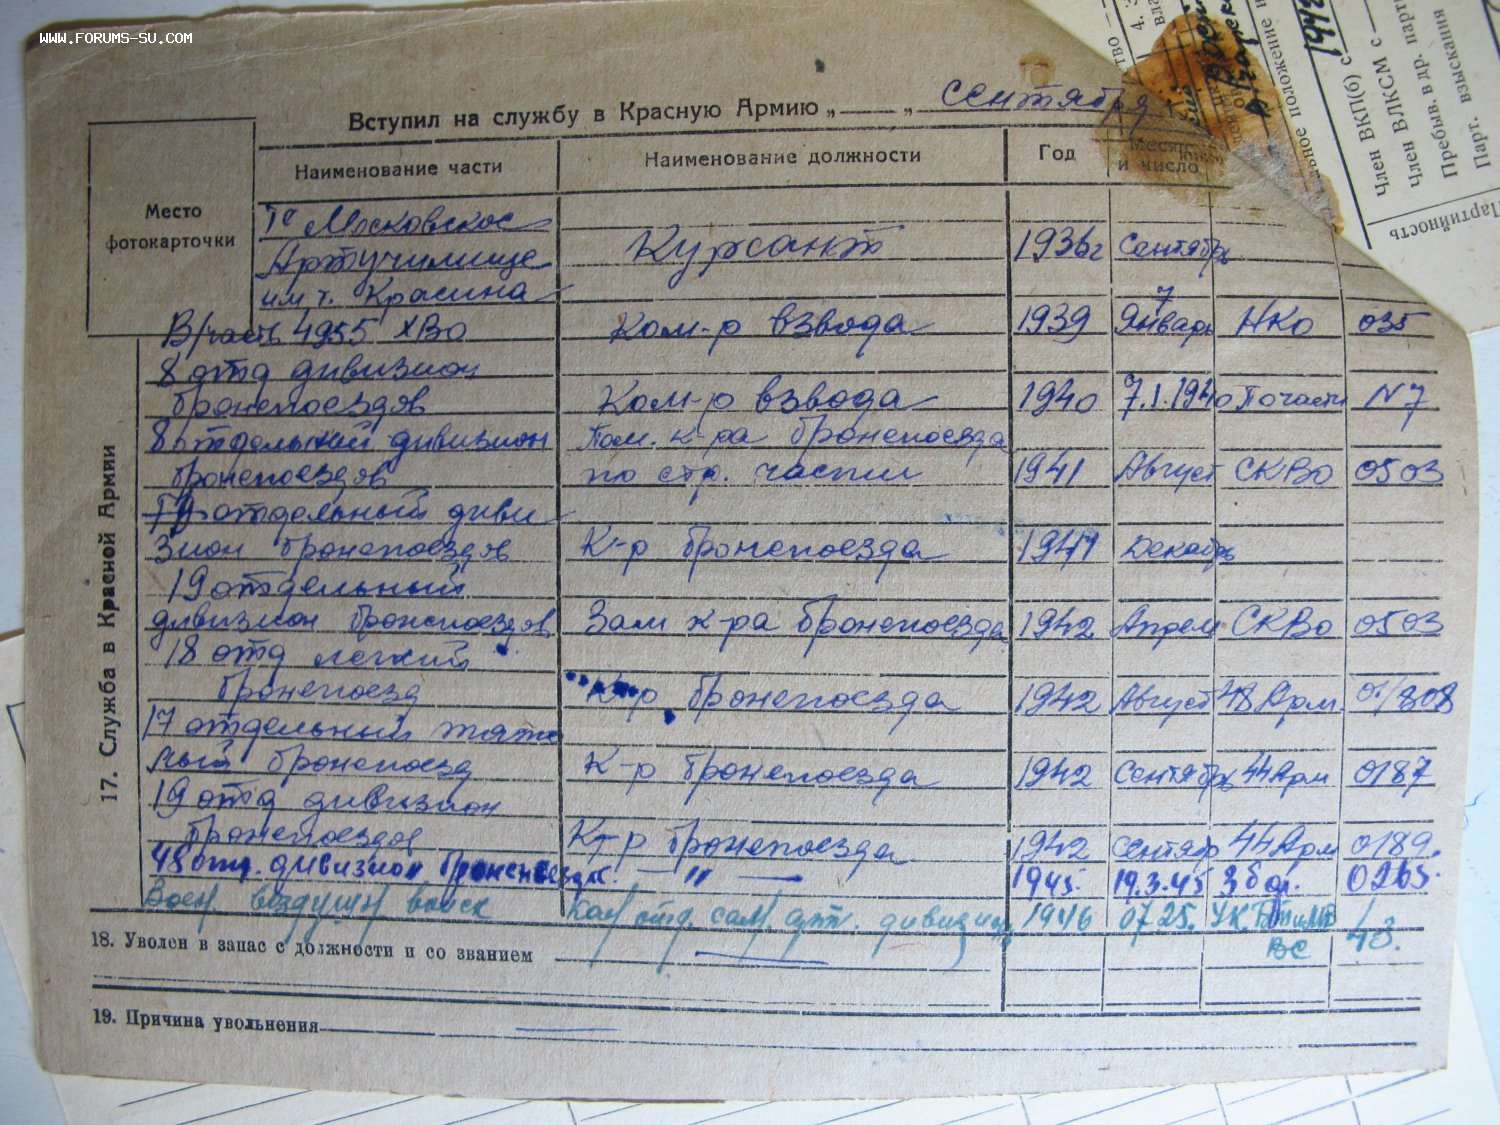 www.forums-su.com
Вступил на службу в Красную Армию „ — “ сентября
Место
фотокарточки
Наименование части
Наименование должности
Год
Месяц
и число
17. Служба в Красной Армии
1е Московское
Артучилище Курсант 1936г Сентябрь
им т. Красина
В/часть 4955 ХВО Ком-р взвода 1939 7 Январь НКО 035
8 отд дивизион
бронепоездов Ком-р взвода 1940 7.1.1940 По части N7
8 отдельный дивизион Пом. к-ра бронепоезда
бронепоездов по стр. части 1941 Август СКВО 0503
19 отдельный диви
зион бронепоездов К-р бронепоезда 1941 Декабрь
19 отдельный
дивизион бронепоездов Зам к-ра бронепоезда 1942 Апрель СКВО 0503
18 отд легкий
бронепоезд к-р бронепоезда 1942 Август 48 Арм. 01/808
17 отдельный тяже
лый бронепоезд К-р бронепоезда 1942 Сентябрь 44 Арм 0187
19 отд дивизион
бронепоездов К-р бронепоезда 1942 Сентябр 44 Арм 0189.
48 отд. дивизион бронепоездов. — " — 1945. 19.3.45 0265.
Воен воздушн войск Ком отд. сам. арт. дивизиона 1946 07 25. УК. БТ и МВ
ВС 48.
18. Уволен в запас с должности и со званием
19. Причина увольнения
4.
1944
Член ВКП(б) с
Член ВЛКСМ с
Пребыв. в др. парт
Парт. взыскания
Партийность